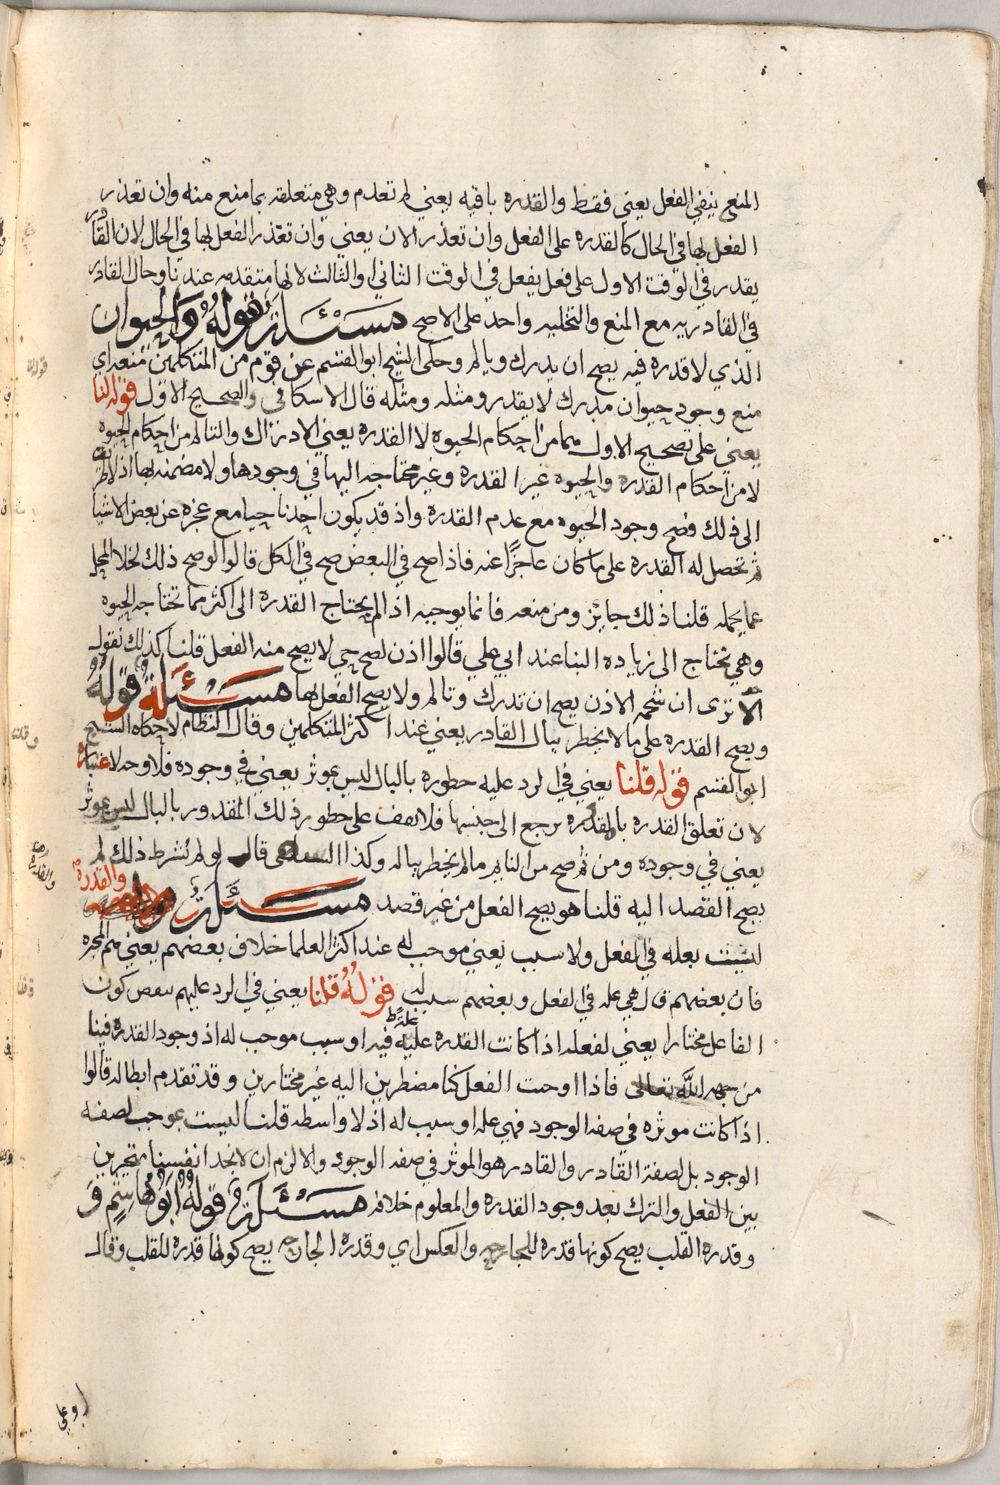 المنع ينفي الفعل يعني فقط والقدره باقيه يعني لم تعدم وهي متعلقه بما منع منه وان تعذر
الفعل بها في الحال كالقدره على الفعل وان تعذر الان يعني وان تعذر الفعل بها في الحال لان القادر
يقدر في الوقت الاول على فعل يفعل في الوقت الثاني والثالث لانها متقدمه عندنا وحال القادر
في القادريه مع المنع والتخليه واحد على الاصح مسئلة قوله والحيوان
الذي لا قدره فيه يصح ان يدرك ويالم وحكى الشيخ ابو القسم عن قوم من المتكلمين منعه اي
منع وجود حيوان مدرك لا يقدر ومثله ومثله قال الاسكافي والصحيح الاول قوله لنا
يعني على تصحيح الاول هما من احكام الحيوه لا القدره يعني الادراك والتالم من احكام الحيوه
لا من احكام القدره والحيوه غير القدره وغير محتاجه اليها في وجودها ولا مضمنه بها اذ لا طريق
الى ذلك فصح وجود الحيوه مع عدم القدره واذ قد يكون احدنا حيا مع عجزه عن بعض الاشيا
ثم تحصل له القدره على ما كان عاجزًا عنه فاذا صح في البعض صح في الكل قالوا لو صح ذلك لخلا المحل
عما يحمله قلنا ذلك جايز ومن منعه فانما يوجبه اذ لم يحتاج القدره الى اكثر مما تحتاجه الحيوه
وهي تحتاج الى زياده البنا عند ابي علي قالوا اذن لصح حي لا يصح منه الفعل قلنا كذلك نقول
الا ترى ان شحمه الاذن يصح ان تدرك وتالم ولا يصح الفعل بها مسئلة قوله
ويصح القدره على ما لا يخطر ببال القادر يعني عند اكثر المتكلمين وقال النظام لا حكاه الشيخ
ابو القسم قوله قلنا يعني في الرد عليه خطوره بالبال ليس بموثر يعني في وجوده فلا وجه لاعتباره
لان تعلق القدره بالمقدره يرجع الى جنسها فلا يقف على خطور ذلك المقدور بالبال ليس بموثر
يعني في وجوده ومن ثم صح من النايم ما لم يخطر بباله وكذا الساهي قال لو لم نشرط ذلك لم
يصح القصد اليه قلنا هو يصح الفعل من غير قصد مسئلة والقدرة
ليست بعله في الفعل ولا سبب يعني موجب له عند اكثر العلما خلاف بعضهم يعني هم المجبره
فان بعضهم قال هي عله في الفعل وبعضهم سبب له قوله قلنا يعني في الرد عليهم ينقض كون
الفاعل مختارا يعني لفعله اذا كانت القدره عليه علة فيه او سبب موجب له اذ وجود القدره فينا
من جهه الله تعالى فاذا اوجبت الفعل كنا مضطرين اليه غير مختارين وقد تقدم ابطاله قالوا
اذا كانت موثره في صفه الوجود فهي عله او سبب له اذ لا واسطه قلنا ليست بموجب لصفه
الوجود بل لصفة القادر والقادر هو الموثر في صفه الوجود والا لزم ان لا نجد انفسنا متحيرين
بين الفعل والترك بعد وجود القدره والمعلوم خلافه مسئلة قوله ابو هاشم و
وقدره القلب يصح كونها قدره للجارحه والعكس اي وقدره الجارحه يصح كونها قدره للقلب وقال
ابو علي